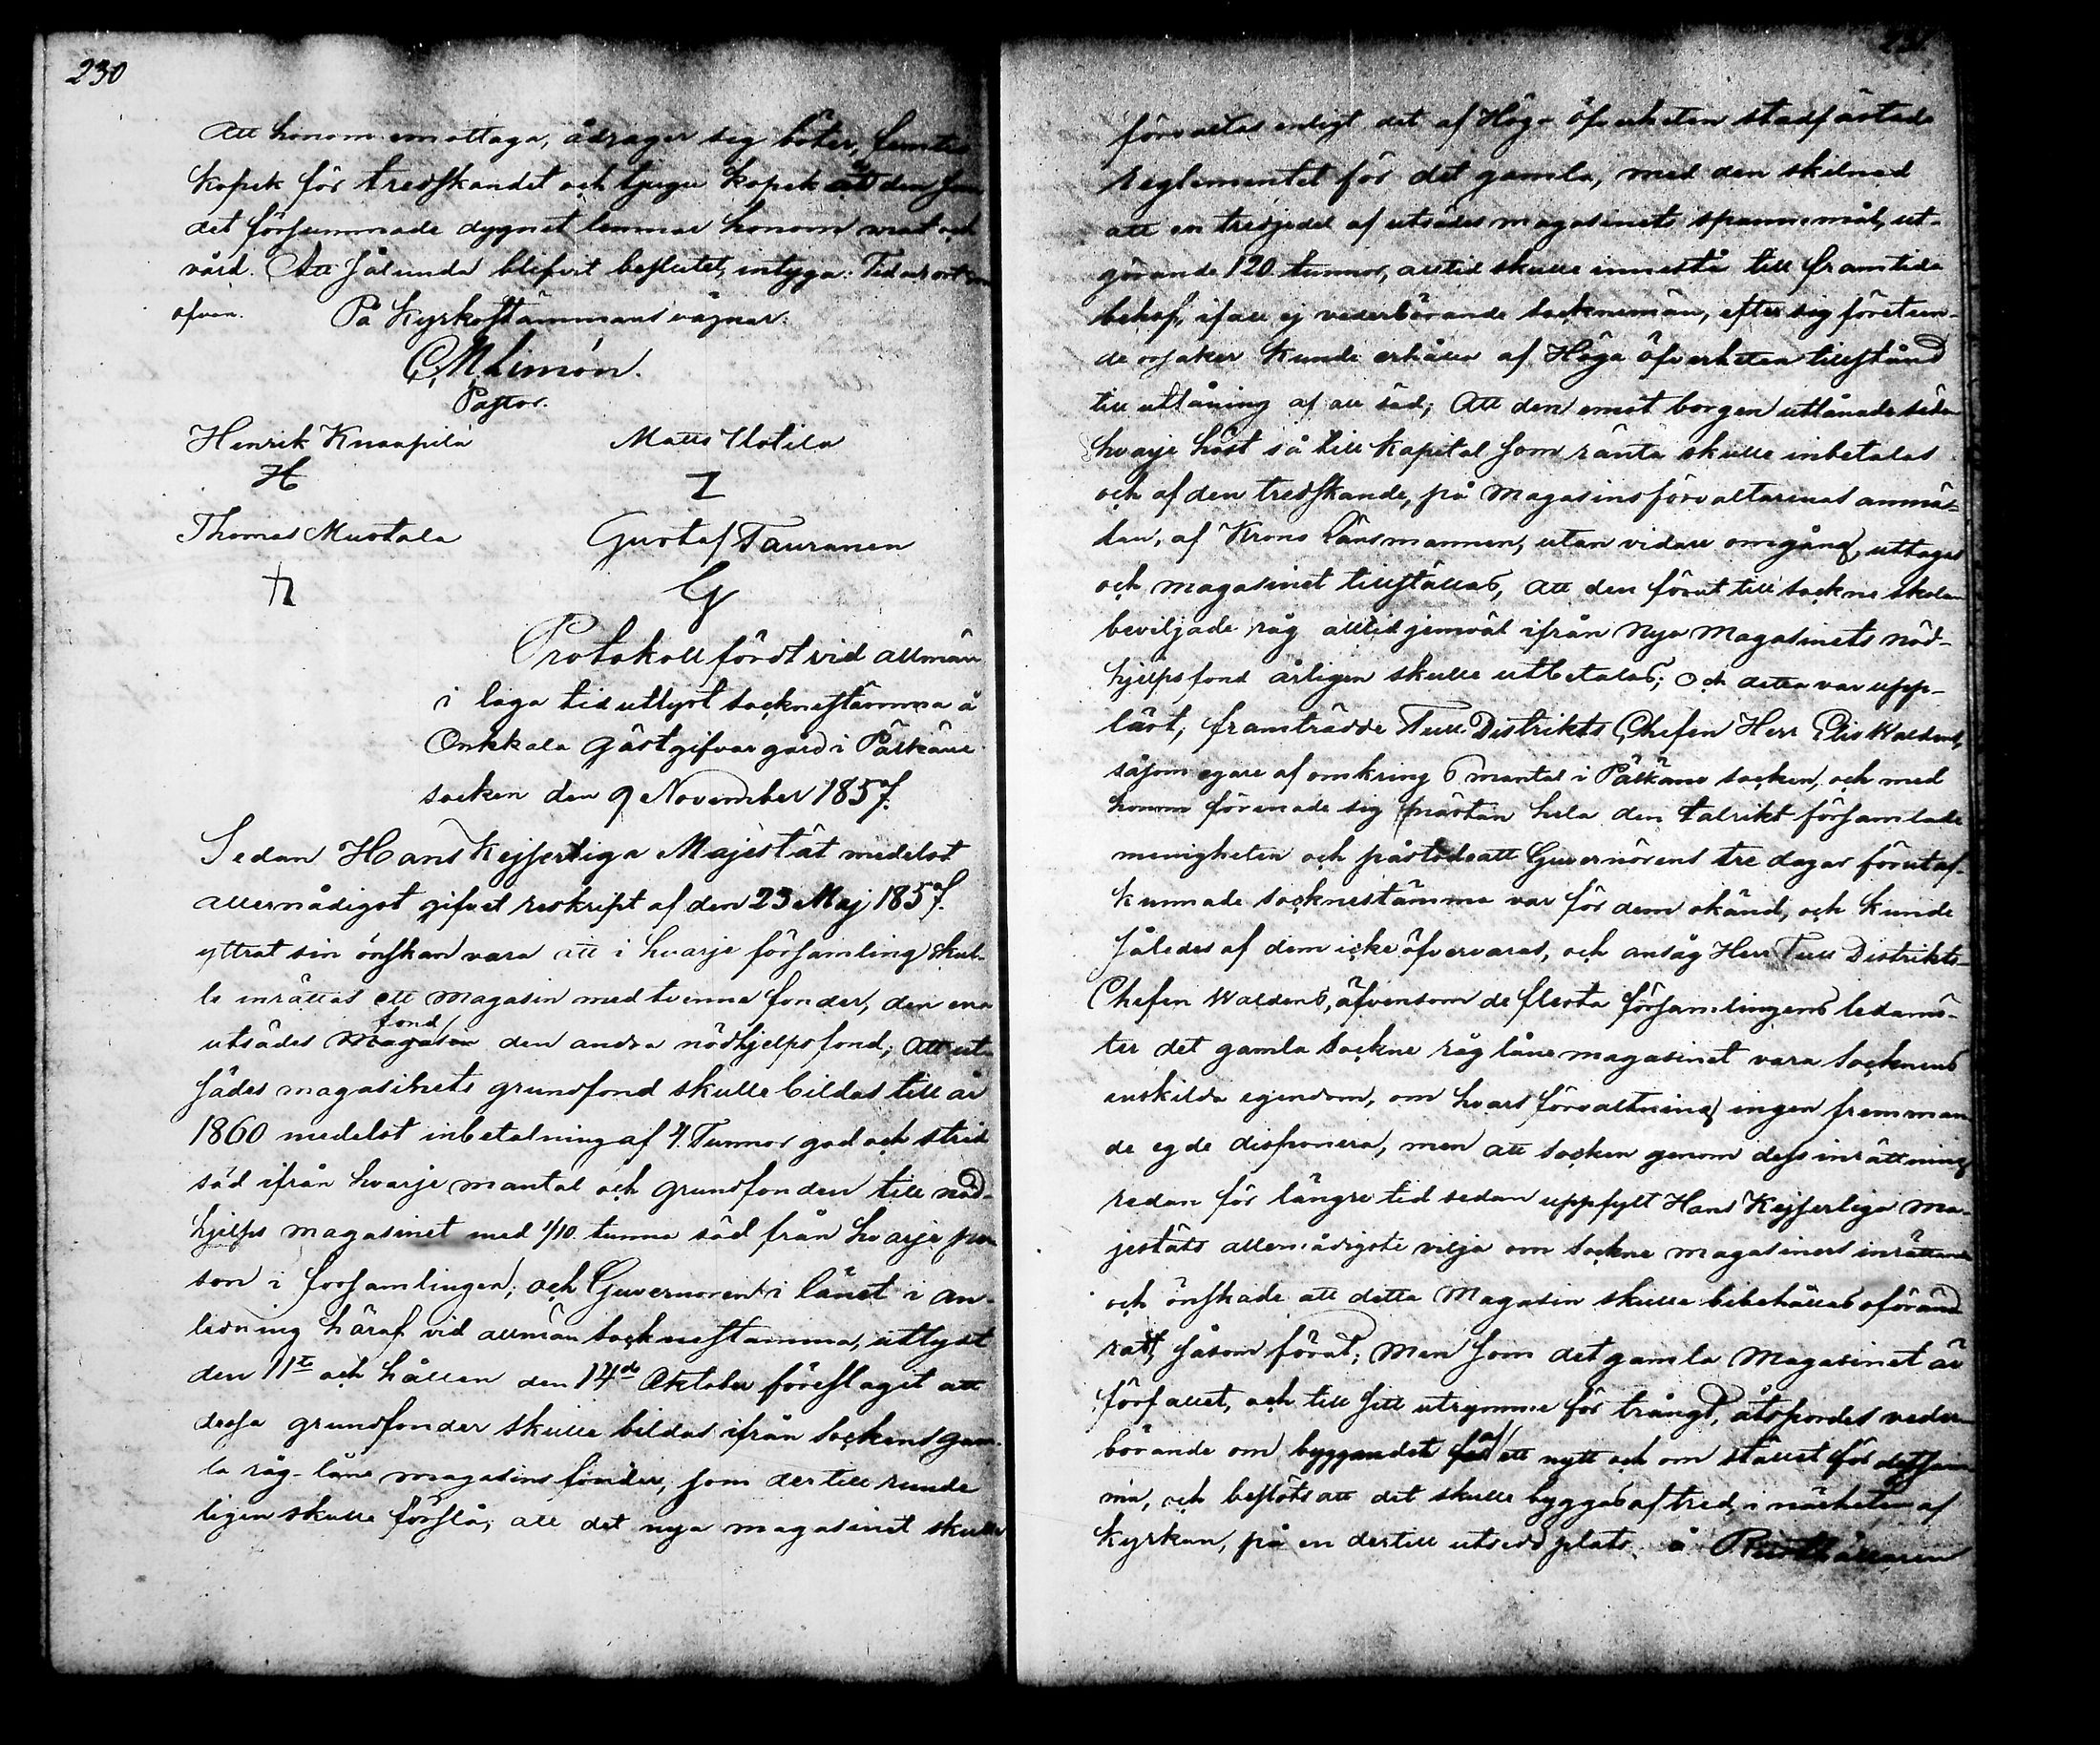 230
Att honom emottaga, ådrager sig böter, femtio
kopek för tredskandet och tjugu kopek åt den som
det försummade dygnet lemnar honom mat och
vård. Att sålunda blifvit beslutet, intyga: Tid och ort som
ofvan. På Kyrkostämmans vägnar:
C. M. Limón.
Pastor.
Henrik Knaapila Matts Uotila
H I
Thomas Mustala Gustaf Tauranen
G
Protokoll fördt vid allmän
i laga tid utlyst socknestämma å
Onkkala gästgifvaregård i Pälkäne
socken den 9 November 1857.
Sedan Hans Kejserliga Majestät medelst
allernådigst gifvet reskript af den 23 Maj 1857.
yttrat sin önskan vara att i hvarje församling skul-
le inrättas ett magasin med tvenne fonder, den ena
fond
utsädes magasin den andra nödhjelpsfond; Att ut-
sädes magasinets grundfond skulle bildas till år
1860 medelst inbetalning af 4. Tunnor god och strid
säd ifrån hvarje mantal och grundfonden till nöd-
hjelps magasinet med 1/10. tunna säd från hvarje per-
son i forsamlingen; och Guvernoren i länet i an-
ledning häraf vid allmän socknestamma, utlyst
den 11te och hållen den 14de Oktober föreslaget att
dessa grundfonder skulle bildas ifrån sockens gam-
la råg-låne magasins fonder, som dertill runde
ligen skulle förslå; att det nya magasinet skulle
förvaltas enligt det af Höga öfverheten stadfästade
reglementet för det gamla, med den skilnad
att en tredjedel af utsädesmagasinets spannemål, ut-
görande 120. tunnor, alltid skulle innestå till framtida
behof, ifall ej vederbörande socknemän, efter sig företeen-
de orsaker kunde erhålla af Höga öfverheten tillstånd
till utlåning af all säd; Att den emot borgen utlånade säden
hvarje höst så till kapital som ränta skulle inbetalas
och af den tredskande, på magasinsförvaltarenas anmä-
lan, af Krono Länsmannen, utan vidare omgång, uttagas
och magasinet tillställas, att den förut till sockne skolan
beviljade råg alltid jemväl ifrån nya magasinets nöd-
hjelpsfond årligen skulle utbetalas; Och detta var upp-
läst, framträdde Tull Distrikts Chefen Herr Elis Waldens,
såsom egare af omkring 6 mantal i Pälkäne socken, och med
honom förenade sig nästan hela den talrikt församlade
menigheten och påstod att Guvernörens tre dagar förut af-
kunnade socknestämma var för dem okänd, och kunde
således af dem icke öfvervaras, och ansåg Herr Tull Distrikts-
Chefen Waldens, äfvensom de flesta församlingens ledamö-
ter det gamla sockne råg låne magasinet vara socknens
enskilda egendom, om hvars förvaltning ingen fremman-
de egde disponera, men att socken genom dess inrättning
redan för längre tid sedan uppfylt Hans Kejserliga Ma-
jestäts allernådigste vilja om sockne magasiners inrättande
och önskade att detta magasin skulle bibehållas oföränd-
radt, såsom förut; Men som det gamla Magasinet är
förfallet, och till sitt utrymme för trångt, åtspordes veder-
börande om byggandet af ett nytt och om stället för detsam-
ma, och beslöts att det skulle byggas af träd, i närheten af
Kyrkan, på en dertill utsedd plats å Rusthållaren